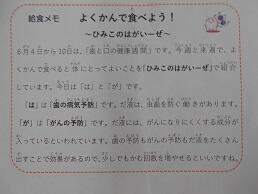 給食メモ よくかんで食べよう！
～ひみこのはがいーぜ～
6月4日から10日は、「歯と口の健康週間」です。今週と来週で、よ
くかんで食べると体にとってよいことを「ひみこのはがいーぜ」で紹介
しています。今日は「は」と「が」です。
「は」は「歯の病気予防」です。だ液は、虫歯を防ぐ働きがあります。
「が」は「がんの予防」です。だ液には、がんになりにくくする成分が
入っているといわれています。歯の予防もがんの予防もだ液をたくさん
出すことで効果があるので、少しでもかむ回数を増やせるといいですね。